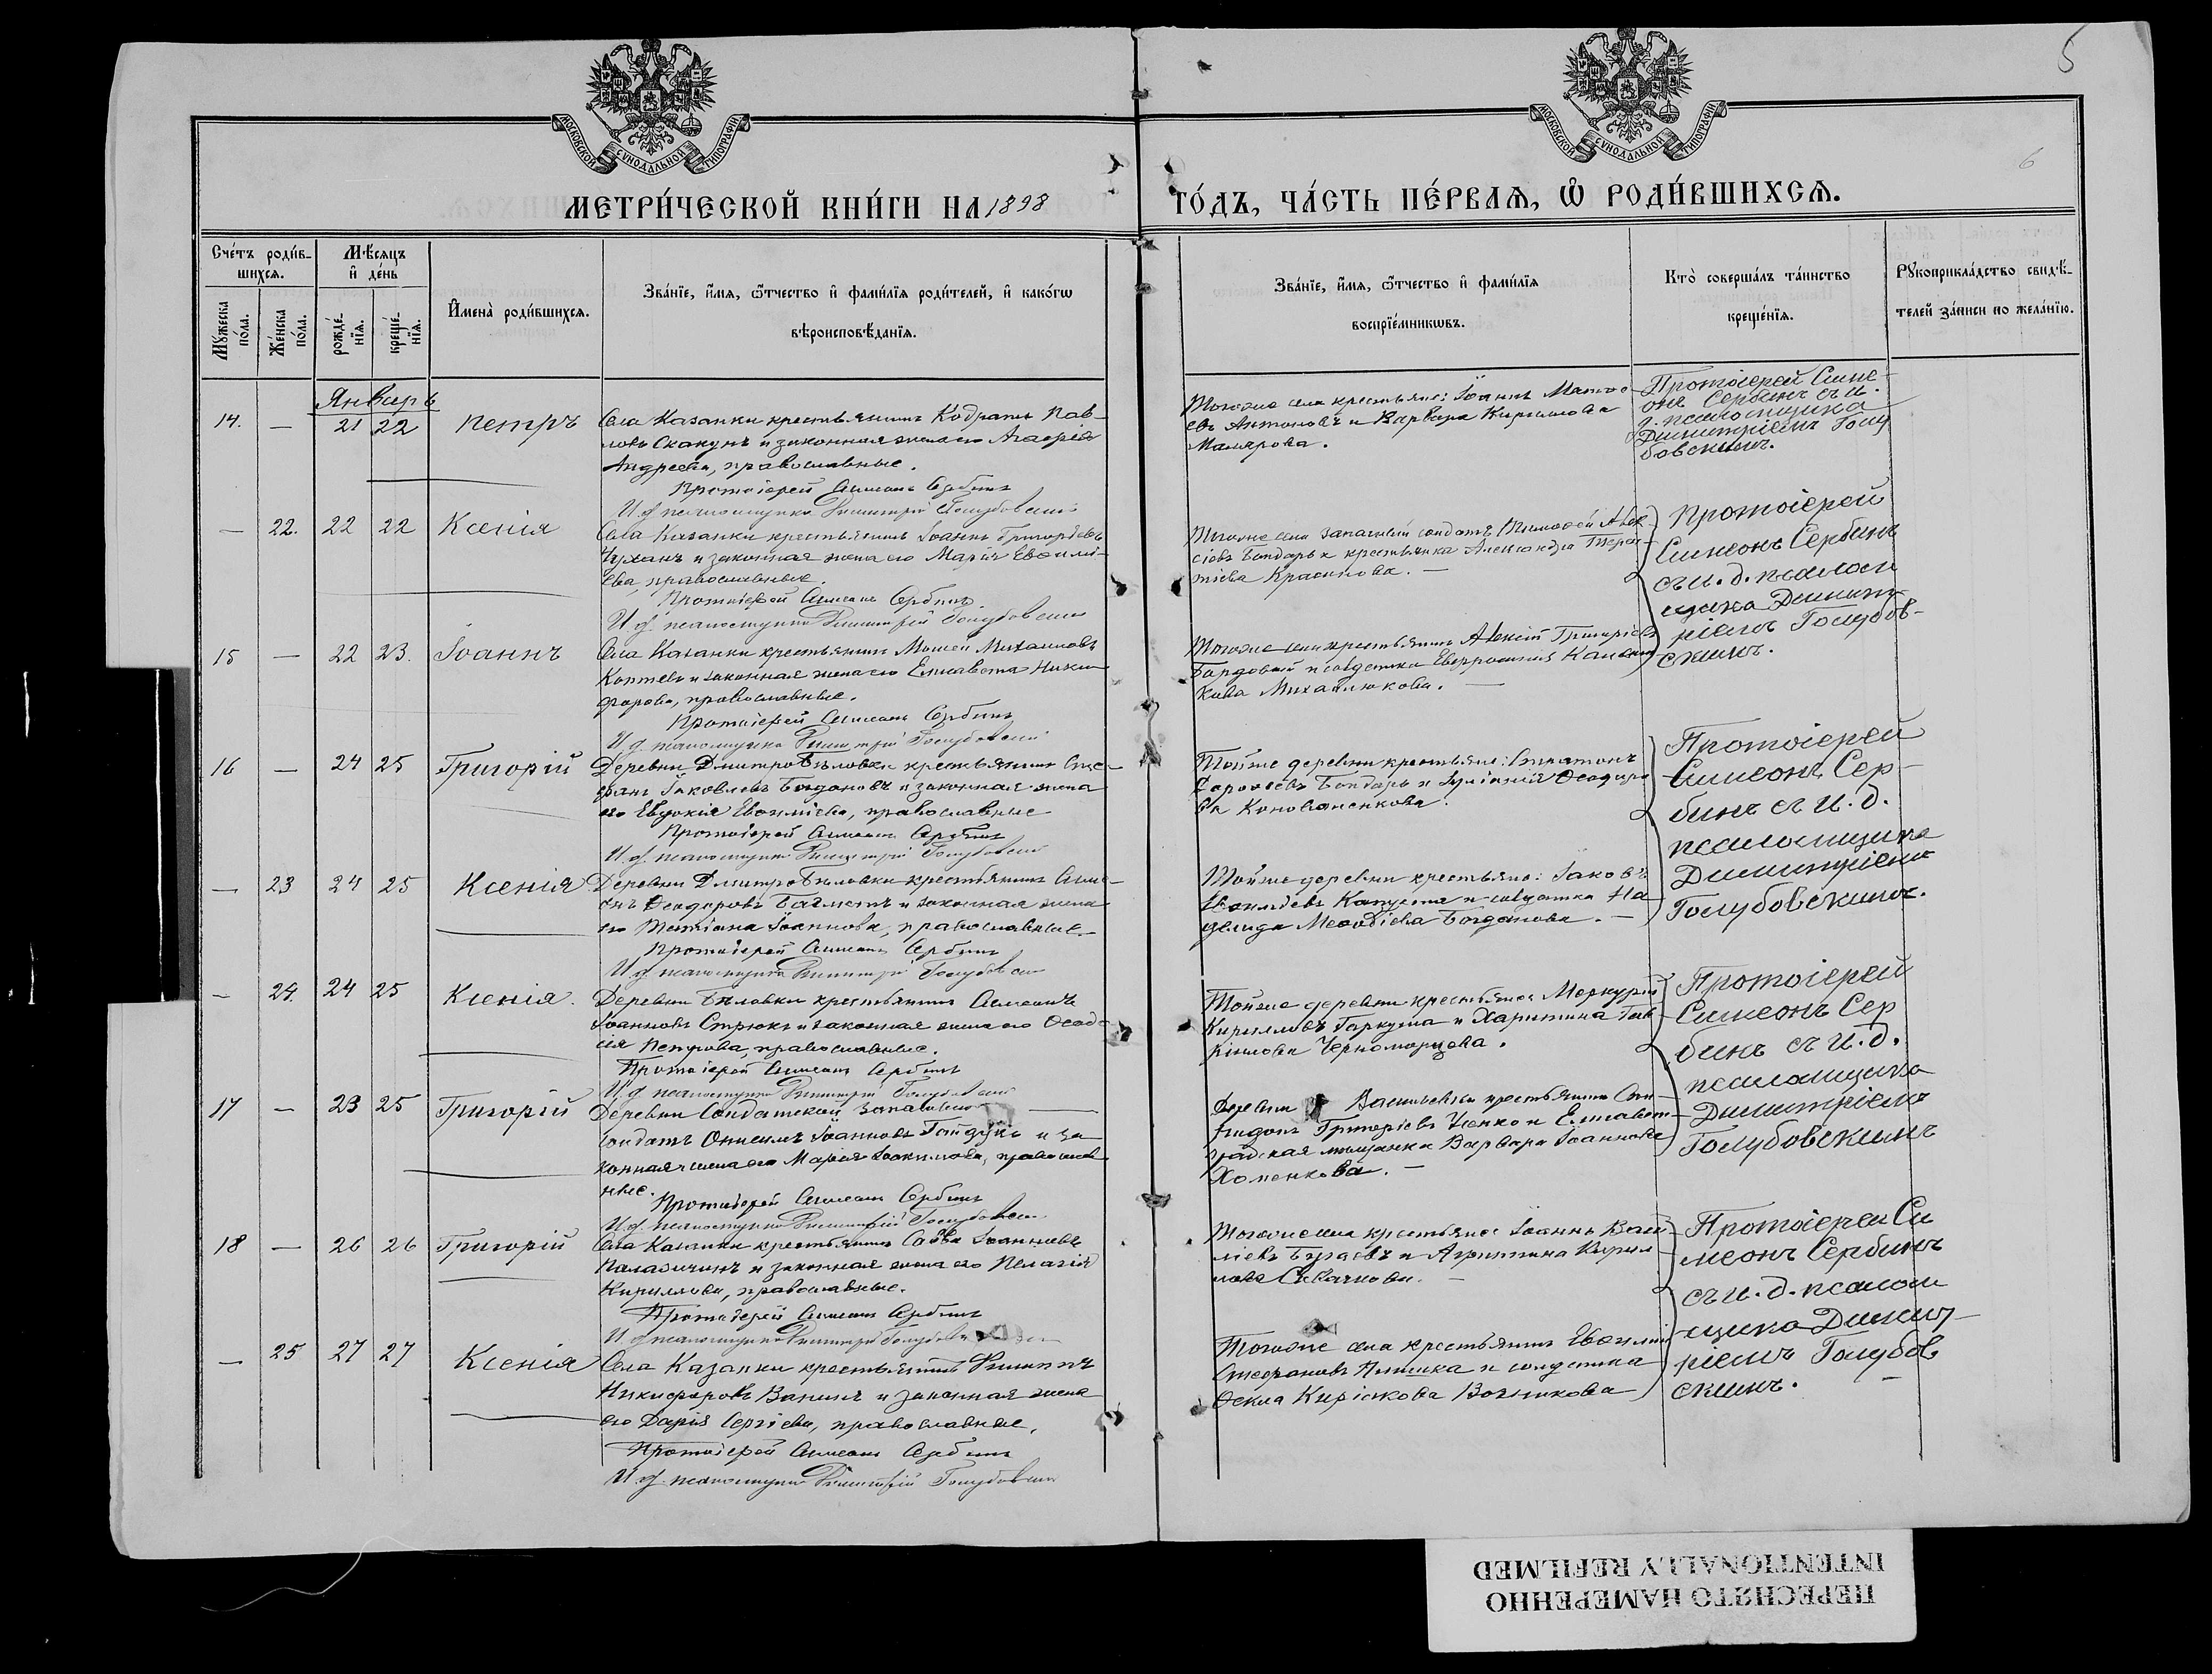 5
6
МОСКОВСКОЙ СѴНОДАЛЬНОЙ ТИПОГРАФІИ
МОСКОВСКОЙ СѴНОДАЛЬНОЙ ТИПОГРАФІИ
МЕТРИ́ЧЕСКОЙ КНИ́ГИ НА 1898
ГО́ДЪ, ЧА́СТЬ ПЕ́РВАѦ, Ѡ҆ РОДИ́ВШИХСѦ.
Сче́тъ роди́в-
шихсѧ.
Мꙋ́жеска по́ла.
Же́нска по́ла.
Мѣ́сѧцъ
и҆ де́нь
рожде́-
нїѧ.
креще́-
нїѧ.
И҆мена̀ роди́вшихсѧ.
Зва́нїе, и҆́мѧ, ѻ҆́тчество и҆ фами́лїѧ роди́телей, и҆ како́гѡ
вѣроисповѣ́данїѧ.
Зва́нїе, и҆́мѧ, ѻ҆́тчество и҆ фами́лїѧ
воспрїе́мникѡвъ.
Кто̀ соверша́лъ та́инство
креще́нїѧ.
Рꙋкоприкла́дство свидѣ́-
телей за́писи по жела́нїю.
Январь
14. — 21 22 Петръ
Села Казанки крестьянинъ Кодратъ Пав-
ловъ Скакунъ и законная жена его Агафія
Андреева, православные.
Протоіерей Симеонъ Сербинъ
И. д. псаломщика Димитрій Голубовскій
Тогоже села крестьяне: Іоаннъ Матѳе-
евъ Антоновъ и Варвара Кириллова
Малярова.
Протоіерей Симе-
онъ Сербинъ съ и.
д. псаломщика
Димитріемъ Голу
бовскимъ.
— 22. 22 22 Ксенія
Села Казанки крестьянинъ Іоаннъ Григорьевъ
Чуханъ и законная жена его Марія Евѳимі-
ева, православные.
Протоіерей Симеонъ Сербинъ
И. д. псаломщика Димитрій Голубовскій
Тогоже села запасный солдатъ Тимоѳей Алек
сіевъ Бондарь и крестьянка Александра Терен-
тіева Красикова. —
Протоіерей
Симеонъ Сербинъ
съ и. д. псалом
щика Димит
ріемъ Голубов-
скимъ.
15 — 22 23. Іоаннъ
Села Казанки крестьянинъ Моисей Михаиловъ
Коптевъ и законная жена его Елисавета Ники-
форова, православные.
Протоіерей Симеонъ Сербинъ
И. д. псаломщика Димитрій Голубовскій
Тогоже села крестьянинъ Алексій Григоріевъ
и солдатка Евфросинія
Михайлюкова. —
16 — 24 25 Григорій
Деревни Дмитро Бѣловки крестьянинъ Сте-
фанъ Іаковлевъ Богдановъ и законная жена
его Евдокія Евѳиміева, православные
Протоіерей Симеонъ Сербинъ
И. д. псаломщика Димитрій Голубовскій
Тойже деревни крестьяне:
Бондарь и Ѳеодоро
ва Коноваленкова.
Протоіерей
Симеонъ Сер-
бинъ съ и. д.
псаломщика
Димитріемъ
Голубовскимъ.
— 23 24 25 Ксенія
Деревни Дмитро Бѣловки крестьянинъ Симе-
онъ Ѳеодоровъ и законная жена
его Татіана Іоаннова, православные.
Протоіерей Симеонъ Сербинъ
И. д. псаломщика Димитрій Голубовскій
Тойже деревни крестьяне: Іаковъ
Евѳиміевъ Капуста и солдатка На
Меѳодіева Богданова. —
— 24. 24 25 Ксенія.
Деревни Бѣловки крестьянинъ Симеонъ
Іоанновъ Стрюкъ и законная жена его Ѳеодо
сія Петрова, православные.
Протоіерей Симеонъ Сербинъ
И. д. псаломщика Димитрій Голубовскій
Тойже деревни крестьяне Меркурій
Кирилловъ Гаркуша и Харитина Гав
рилова Черноморцева.
Протоіерей
Симеонъ Сер
бинъ съ и. д.
псаломщика
Димитріемъ
Голубовскимъ
17 — 23 25 Григорій
Деревни Солдатской запасный
солдатъ Онисимъ Іоанновъ Гайдукъ и за
конная жена его Марія Іоакимова, православ
ные.
Протоіерей Симеонъ Сербинъ
И. д. псаломщика Димитрій Голубовскій
Деревни Васильевки крестьянинъ Спи-
ридонъ Григоріевъ и Елисавет-
градская мѣщанка Варвара Іоаннова
Хоменкова. —
18 — 26 26 Григорій
Села Казанки крестьянинъ Савва Іоанновъ
Паламчинъ и законная жена его Пелагія
Кириллова, православные.
Протоіерей Симеонъ Сербинъ
И. д. псаломщика Димитрій
Тогоже села крестьяне Іоаннъ Васи
ліевъ Бугаевъ и Агриппина Кирил
лова —
Протоіерей Си
меонъ Сербинъ
съ и. д. псалом
щика Димит-
ріемъ Голубов
скимъ.
— 25 27 27 Ксенія
Села Казанки крестьянинъ Филиппъ
Никифоровъ Ванинъ и законная жена
его Дарія Сергіева, православные.
Протоіерей Симеонъ Сербинъ
И. д. псаломщика Димитрій Голубовскій
Тогоже села крестьянинъ Евѳимій
Стефановъ и солдатка
Ѳекла Киріакова
ПЕРЕСНЯТО НАМЕРЕННО
INTENTIONALLY REFILMED